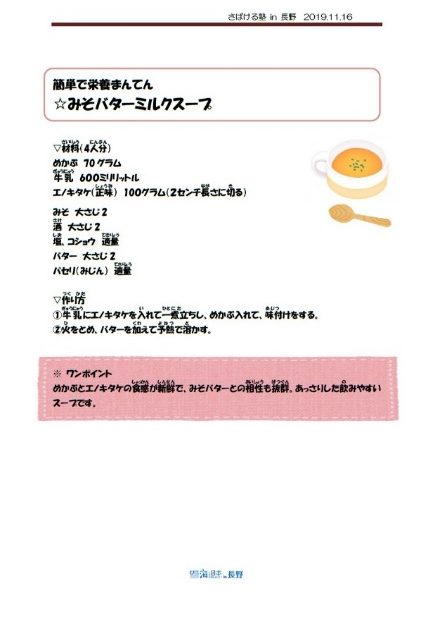 さばける塾 in 長野 2019.11.16
簡単で栄養まんてん
☆みそバターミルクスープ
▽材料(4人分)
めかぶ 70グラム
牛乳 600ミリリットル
エノキタケ(正味) 100グラム(2センチ長さに切る)
みそ 大さじ2
酒 大さじ2
塩、コショウ 適量
バター 大さじ2
パセリ(みじん) 適量
▽作り方
①牛乳にエノキタケを入れて一煮立ちし、めかぶ入れて、味付けをする。
②火をとめ、バターを加えて予熱で溶かす。
※ ワンポイント
めかぶとエノキタケの食感が新鮮で、みそバターとの相性も抜群。あっさりした飲みやすい
スープです。
海と日本 in 長野